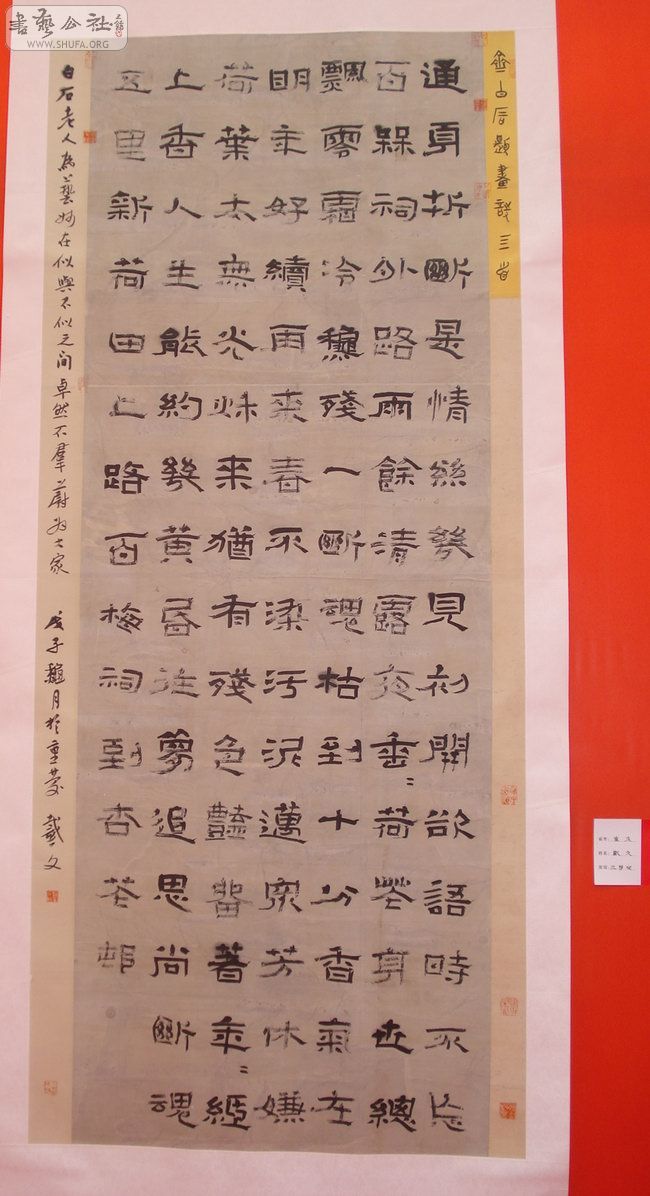 書藝公社
www.SHUFA.ORG
齊白石題畫詩三首
通身折斷是情絲幾見初開欲語時不忘
百梅祠外路雨餘清露夜垂〻荷花身世總
飄零霜冷穐殘一斷魂枯到十分香氣在
明年好續再來春不染汙泥邁眾芳休嫌
荷葉太無光秌來猶有殘色豔留著年〻紙
上香人生能約幾黃昏往夢追思尚斷魂
五里新荷田上路百梅祠到杏花邨
白石老人為藝妙在似與不似之间卓然不羣蔚為大家 戊子穐月於重慶 戴文